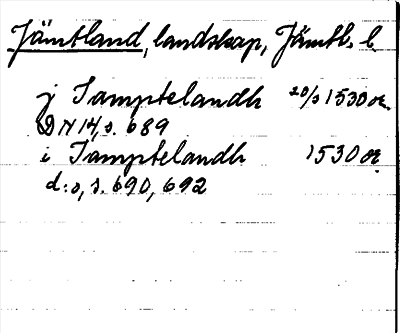 Jämtland, landskap, Jämtl. l.
j Jamptelandh 20/3 1530 or.
DN 14, s. 689
i Jamptelandh 1530 or.
d:o, s. 690, 692